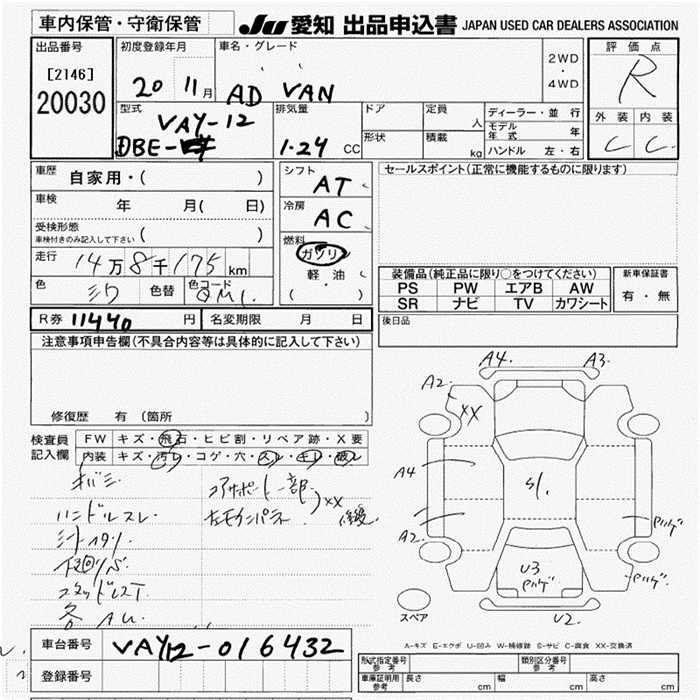 車内保管・守衛保管
JU 愛知 出品申込書 JAPAN USED CAR DEALERS ASSOCIATION
出品番号
[2146]
20030
初度登録年月
20 11月
車名・グレード
AD VAN
2WD
・
4WD
評価点
R
外装 内装
C C
型式
VAY-12
DBE-
排気量
1.24 CC
ドア
形状
定員 人
積載 kg
ディーラー・並行
モデル年式 年
ハンドル 左・右
車歴 自家用・( )
車検 年 月( 日)
受検形態
車検付きのみ記入して下さい ( )
走行 14万8千175km
色 シロ 色替 色コード QM1
シフト AT
冷房 AC
燃料 ガソリン
軽油
( ・ )
セールスポイント(正常に機能するものに限ります)
装備品(純正品に限り○をつけてください)
PS PW エアB AW
SR ナビ TV カワシート
新車保証書
有・無
R券 11440 円 名変期限 月 日
後日品
注意事項申告欄(不具合内容等は具体的に記入して下さい)
修復歴 有(箇所
検査員記入欄
FW キズ・飛石・ヒビ割・リペア跡・X要
内装 キズ・汚レ・コゲ・穴・スレ・キレ・破レ
ハンドルスレ
下廻サビ
スタッドレスT
各AU
コアサポート一部
XX
A4. A3.
A2. XX
A4 S1.
A2. ハゲ
U3 ハゲ ハゲ
U2.
スペア
A-キズ E-エクボ U-凹み W-補修跡 S-サビ C-腐食 XX-交換済
車台番号 VAY12-016432
登録番号
型式指定番号 参考 類別区分番号 参考
車庫証明用 参考 長さ cm 幅 cm 高さ cm